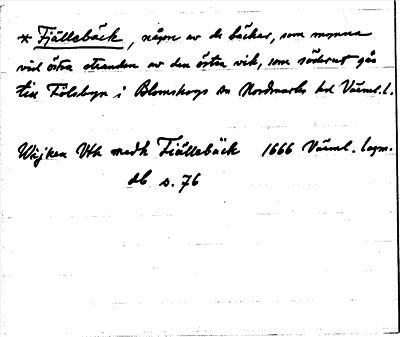 * Fjällebäck, någon av de bäckar, som mynna
vid östra stranden av den östra vik, som söderut går
till Fölsbyn i Blomskogs sn Nordmarks hd Värml. l.
Wijken Uth medh Fiällebäck 1666 Värml. lagm.
db s. 76